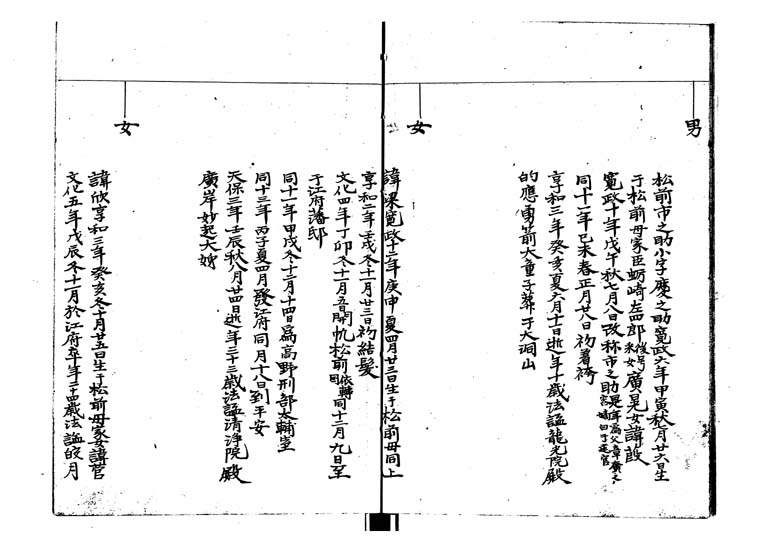 男
松前市之助小字慶之助寛政六年甲寅秋月廿六日生
于松前母家臣蛎崎左四郎 廣晃女諱
寛政十年戊午秋七月八日改称市之助
同十一年己未春正月廿八日初着袴
享和三年癸亥夏六月十日逝年十歳法謚龍光院殿
的應勇箭大童子葬于大洞山
女
諱梁寛政十二年庚申夏四月廿三日生于松前母同上
享和二年壬戌冬十一月廿三日初結髪
文化四年丁卯冬十一月 開帆松前 同十二月九日至
于江府藩邸
同十一年甲戌冬十二月十四日為高野刑部太輔室
同十三年丙子夏四月發江府同月十八日到平安
天保三年壬辰秋八月廿四日逝年三十三歳法謚清浄院殿
廣岸妙起大姉
女
諱欣享和三年癸亥冬十月廿五日生于松前母家女諱菅
文化五年戊辰冬十一月於江府卒年 歳法謚皎月